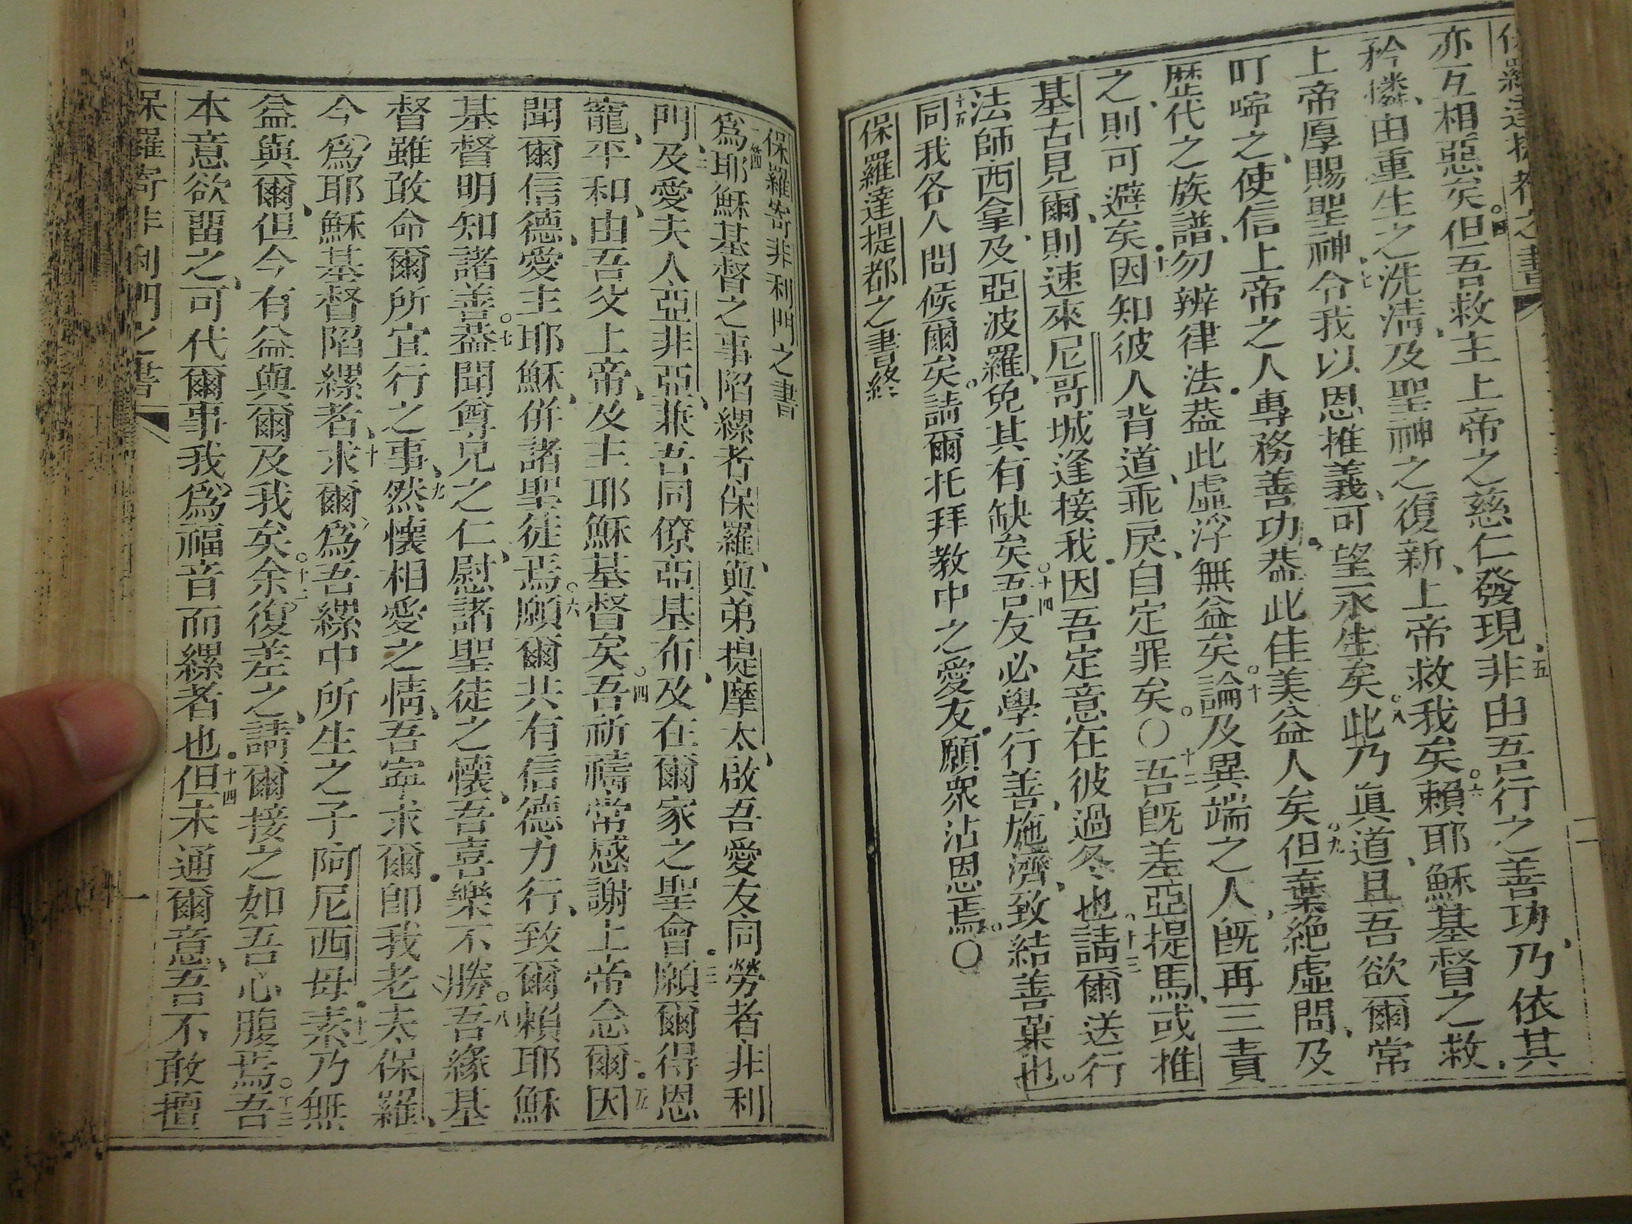 保羅達提都之書 二
亦互相惡矣。但吾救主上帝之慈仁發現、五非由吾行之善功、乃依其
矜憐、由重生之洗清、及聖神之復新、上帝救我矣。六賴耶穌基督之救、
上帝厚賜聖神、七令我以恩推義、可望永生矣。八此乃眞道、且吾欲爾常
叮嚀之、使信上帝之人專務善功。葢此佳美益人矣。九但棄絶虛問、及
歷代之族譜、勿辨律法。葢此虛浮無益矣。十論及異端之人、旣再三責
之、則可避矣。十一因知彼人背道、乖戾、自定罪矣。〇十二吾旣差亞提馬、或推
基古見爾、則速來尼哥城逢接我。因吾定意在彼過冬也。十三請爾送行
法師西拿、及亞波羅、免其有缺矣。十四吾友必學行善、施濟、致結善菓也。
十五同我各人問候爾矣。請爾托拜教中之愛友。願衆沾恩焉。〇
保羅達提都之書終
保羅寄非利門之書
一爲耶穌基督之事陷縲者保羅、與弟提摩太、啟吾愛友同勞者非利
門、二及愛夫人亞非亞、兼吾同僚亞基布、及在爾家之聖會。三願爾得恩
寵、平和、由吾父上帝、及主耶穌基督矣。四吾祈禱常感謝上帝念爾。五因
聞爾信德、愛主耶穌、併諸聖徒焉。六願爾共有信德力行、致爾賴耶穌
基督明知諸善。七葢聞尊兄之仁、慰諸聖徒之懷、吾喜樂不勝。八吾緣基
督雖敢命爾所宜行之事、九然懷相愛之情、吾寧求爾。卽我老夫保羅、
今爲耶穌基督陷縲者、十求爾爲吾縲中所生之子阿尼西母。十一素乃無
益與爾、但今有益與爾及我矣。十二余復差之、請爾接之如吾心腹焉。十三吾
本意欲畱之、可代爾事我、爲福音而縲者也。十四但未通爾意、吾不敢擅
保羅寄非利門之書 一